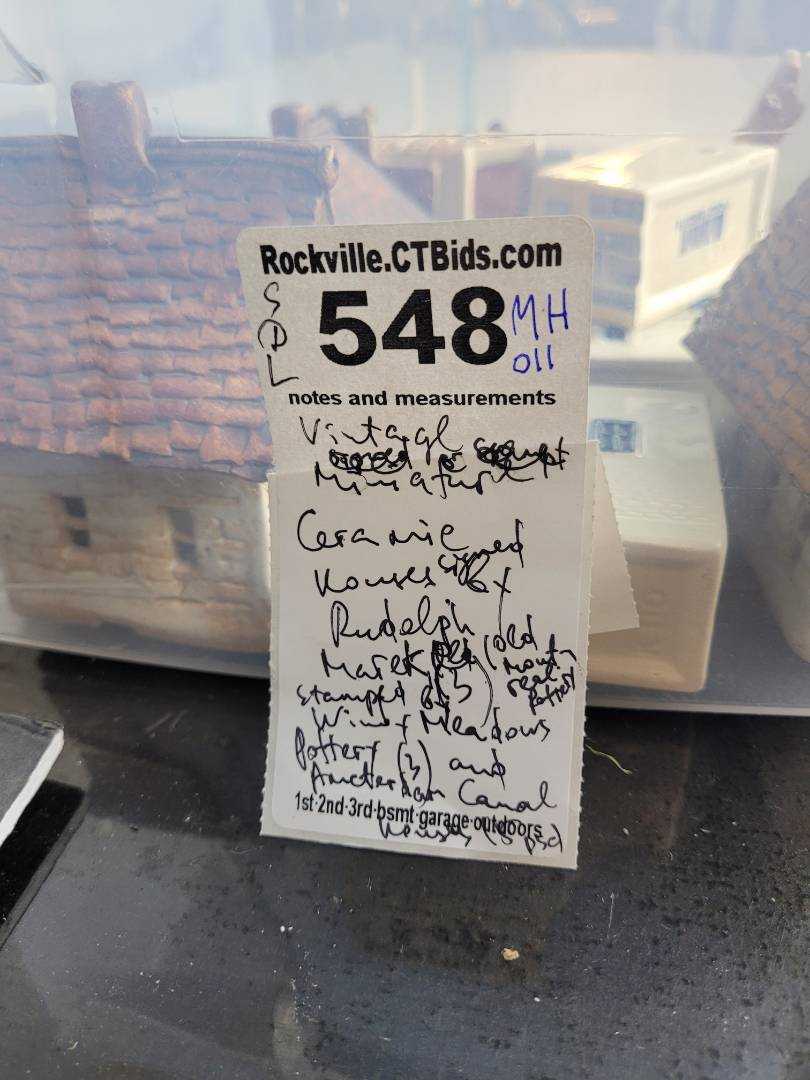 Rockville.CTBids.com
S@L 548 MH
011
notes and measurements
Vintage
Miniature
Ceramic
Houses signed 6x
Rudolph
Marek (old
Mount
real
Pottery
stamped (3)
Windy Meadows
Pottery (3) and
Amsterdam Canal
1st·2nd·3rd·bsmt·garage·outdoors
houses